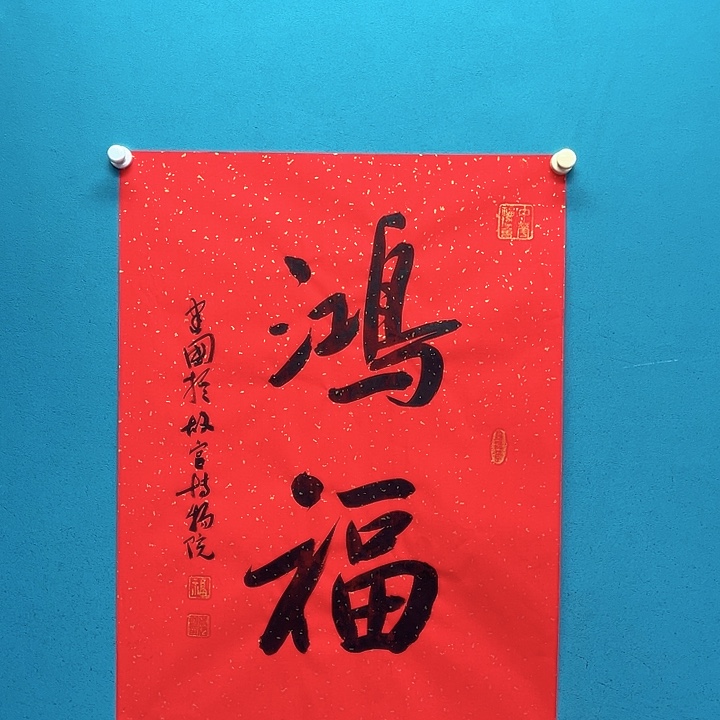 鸿
福
建國於故宫博物院